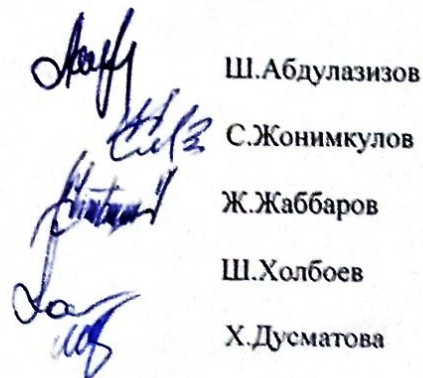 Ш.Абдулазизов
С.Жонимкулов
Ж.Жаббаров
Ш.Холбоев
Х.Дусматова